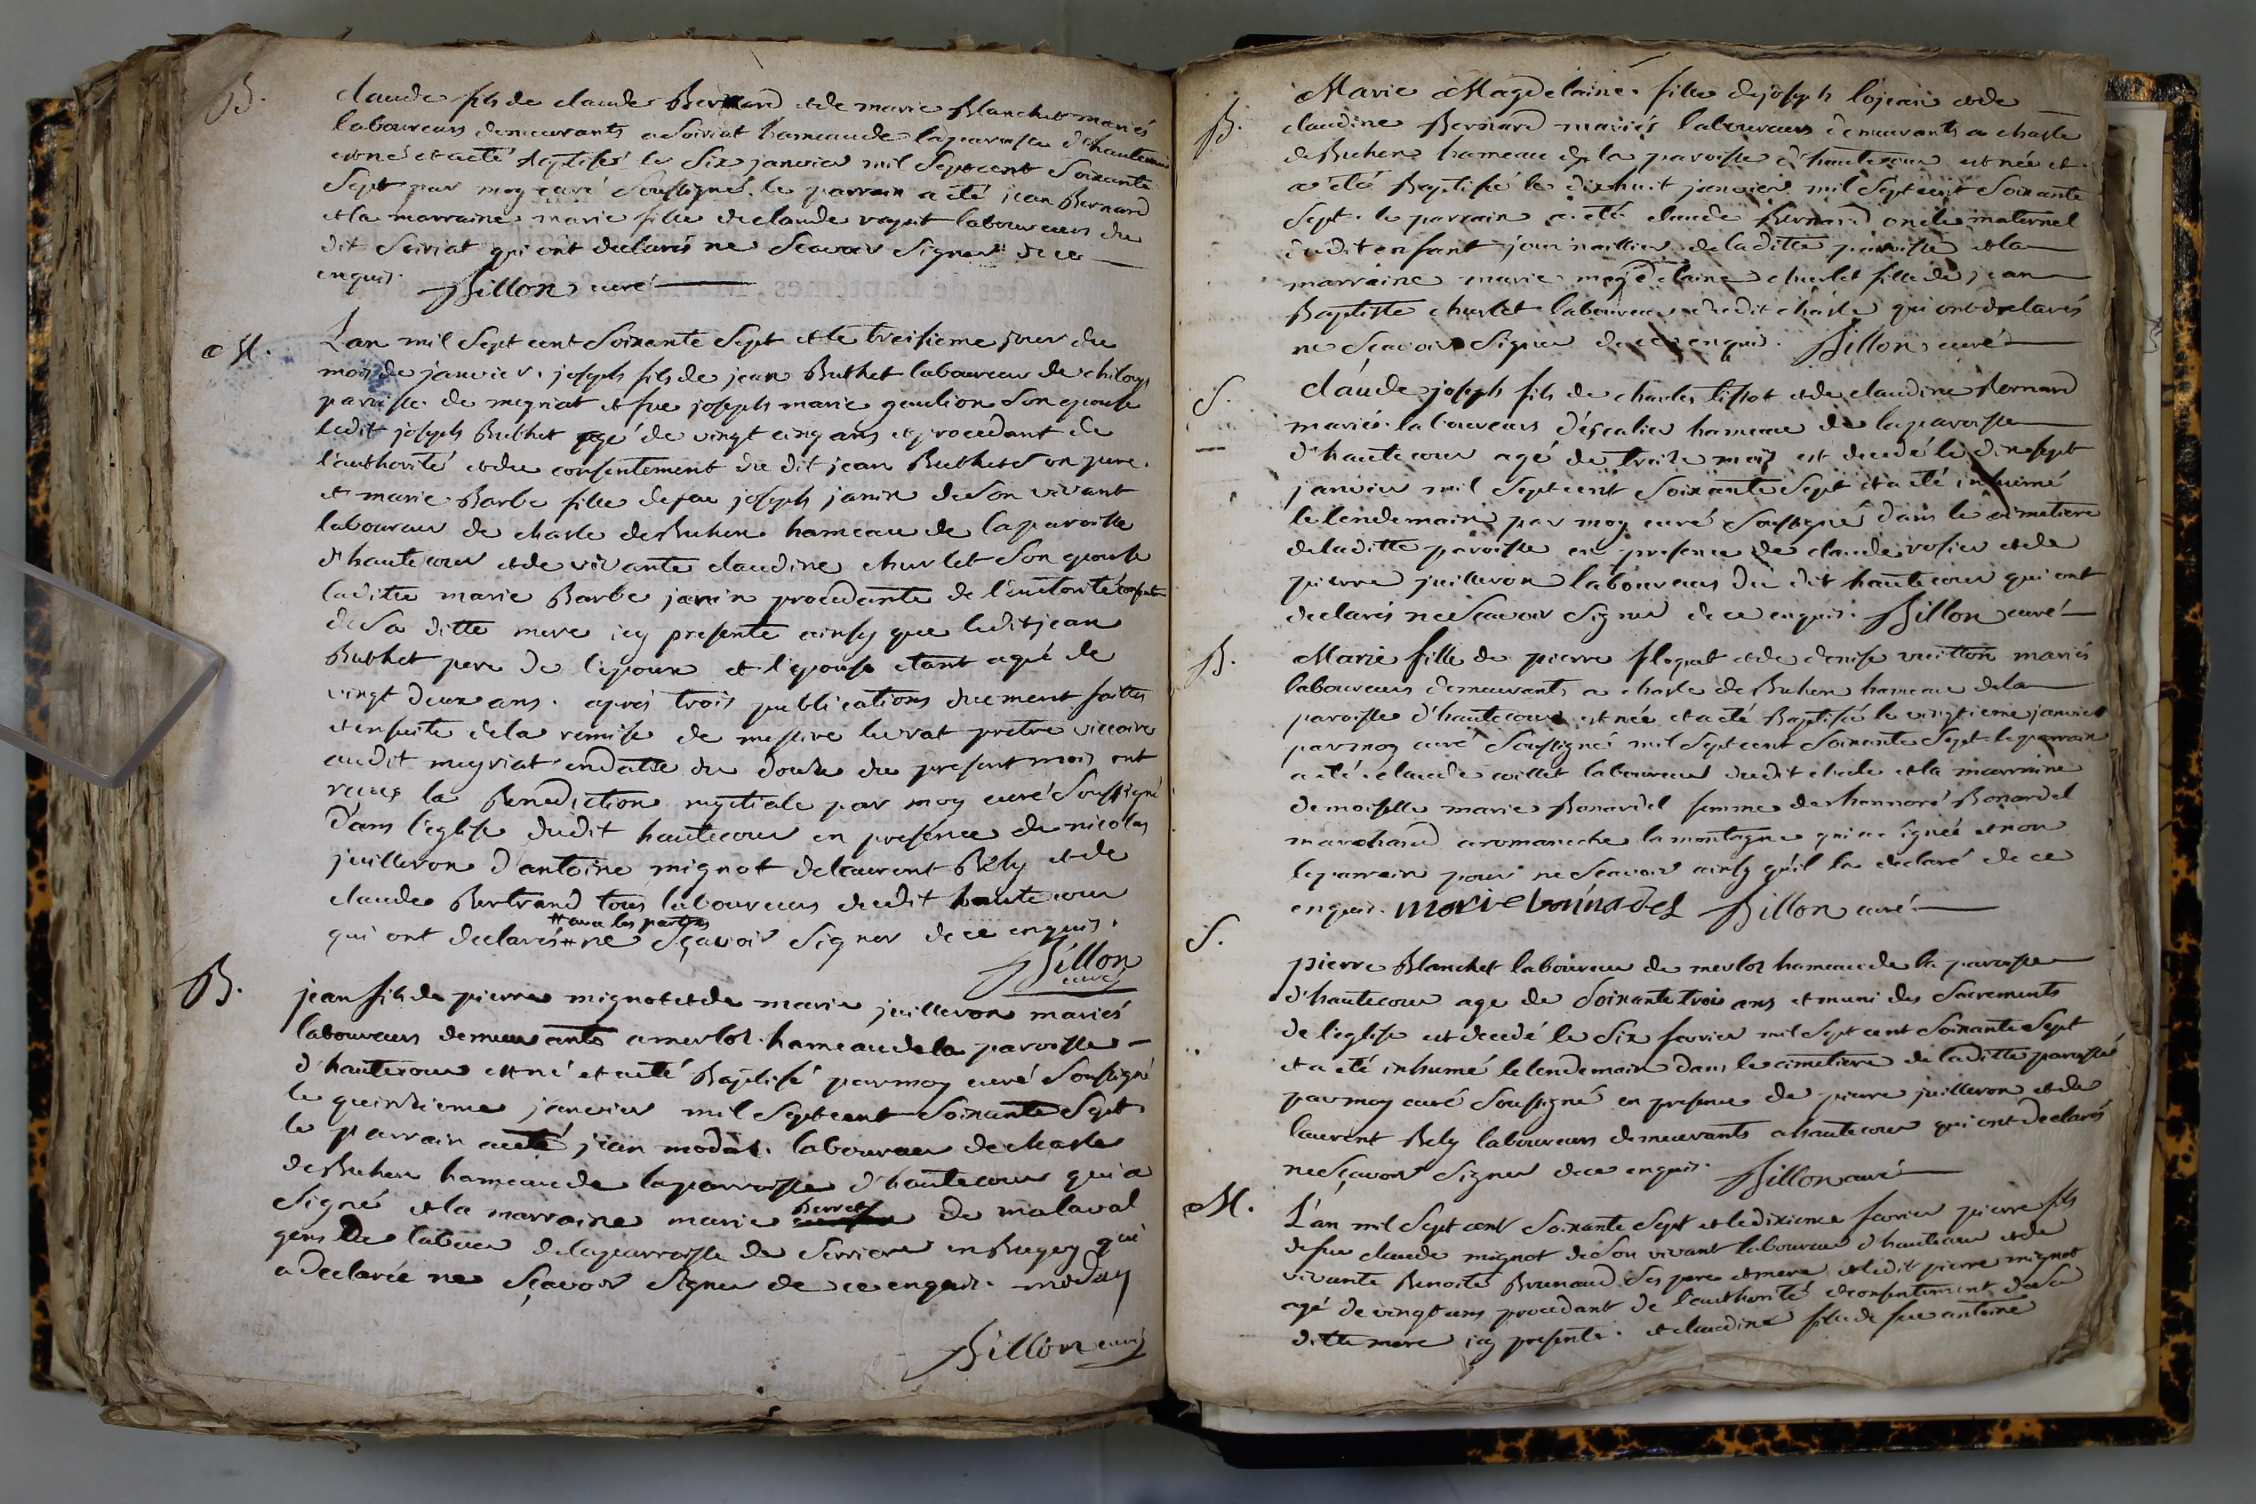 B.
claude fils de claude Bernard et de marie Blanchet mariés
laboureurs demeurants a Soiriat hameau de la paroisse d'hautecour
est né et a eté Baptisé le Six janvier mil Sept cent Soixante
Sept par moy curé Soussigné. le parrain a été jean Bernard
et la marraine marie fille de claude laboureur du
dit Soiriat qui ont declarés ne Sçavoir Signer de ce
enquis. Billon curé
M.
L'an mil Sept cent Soixante Sept et le treisieme jour du
mois de janvier. joseph fils de jean Buthet laboureur de chiloup
paroisse de meyriat et fue joseph marie goulion Son epouse
ledit joseph Buthet agé de vingt cinq ans et procedant de
l'authorité et du consentement du dit jean Buthet Son pere.
et marie Barbe fille de feu joseph janin de Son vivant
laboureur de chasle de Buhen hameau de la paroisse
d'hautecour et de vivante claudine churlet Son epouse
laditte marie Barbe janin procedante de l'autorité consente
de Sa ditte mere icy presente ainsy que ledit jean
Buthet pere de l'epoux et l'epouse etant agée de
vingt deux ans. aprés trois publications duement faittes
et ensuite de la remise de messire luvat pretre viccaire
audit meyriat en datte du douze du present mois ont
reçus la Benediction nuptiale par moy curé Soussigné
dans l'eglise dudit hautecour en presence de nicolas
juilleron d'antoine mignot de laurent Bely et de
claude Bertrand tous laboureurs dudit hautecour
# avec les parties
qui ont declarés # ne Sçavoir Signer de ce enquis.
Billon
curé
B.
jean fils de pierre mignot et de marie juilleron mariés
laboureurs demeurants a merloz. hameau de la paroisse
d'hautecour est né et a eté Baptisé par moy curé Soussigné
le quinzieme janvier mil Sept cent Soixante Sept
le parrain a eté jean modas. laboureur de chasle
de Buhen hameau de la parroisse d'hautecour qui a
Signé et la marraine marie Berret de malaval
gens de labeur de la parroisse de Serriere en Bugey qui
a declarée ne Sçavoir Signer de ce enquis. moday
Billon curé
B.
Marie Magdelaine. fille de joseph lojeau et de
claudine Bernard mariés laboureurs demeurants a chasle
de Buhen hameau de la paroisse d'hautecour est née et
a été Baptisée le dixhuit janvier mil Sept cent Soixante
Sept. le parrain a eté claude Bernard oncle maternel
dudit enfant journaillier de laditte paroisse et la
marraine marie magdelaine churlet fille de jean
Baptiste churlet laboureur dudit chasle qui ont declarés
ne Sçavoir Signer de ce enquis. Billon curé
S.
claude joseph fils de charles tissot et de claudine Bernard
mariés laboureurs d'escalier hameau de la paroisse
d'hautecour agé de treize mois est decedé le dix sept
janvier mil Sept cent Soixante Sept et a eté inhumé
le lendemain par moy curé Soussigné dans le cimetiere
de laditte paroisse en presence de claude rosier et de
pierre juilleron laboureurs du dit hautecour qui ont
declarés ne Scavoir Signer de ce enquis. Billon curé
B.
Marie fille de pierre floquet et de denise vuitton mariés
laboureurs demeurants a chasle de Buhen hameau de la
paroisse d'hautecour est née et a eté Baptisée le vingtieme janvier
par moy curé Soussigné mil Sept cent Soixante Sept le parrain
a eté. claude coillet laboureur dudit chasle et la marraine
demoiselle marie Bonardel femme de honnoré Bonardel
marchand a romaneche la montagne qui a signée et non
le parrain pour ne Sçavoir ainsy qu'il l'a declaré de ce
enquis. Marie bounadel Billon curé
S.
pierre Blanchet laboureur de merloz hameau de la paroisse
d'hautecour age de Soixante trois ans et muni des Sacrements
de l'eglise est decedé le Six fevrier mil Sept cent Soixante Sept
et a eté inhumé le lendemain dans le cimetiere de laditte paroisse
par moy curé Soussigné en presence de pierre juilleron et de
laurent Bely laboureurs demeurants a hautecour qui ont declarés
ne Sçavoir Signer de ce enquis. Billon curé
M.
L'an mil Sept cent Soixante Sept et le dixieme fevrier pierre fils
de feu claude mignot de Son vivant laboureur d'hautecour et de
vivante Benoite Brunaud Ses pere et mere et ledit pierre mignot
agé de vingt ans procedant de l'authorité et consentement de Sa
ditte mere icy presente. et claudine fille de feu antoine